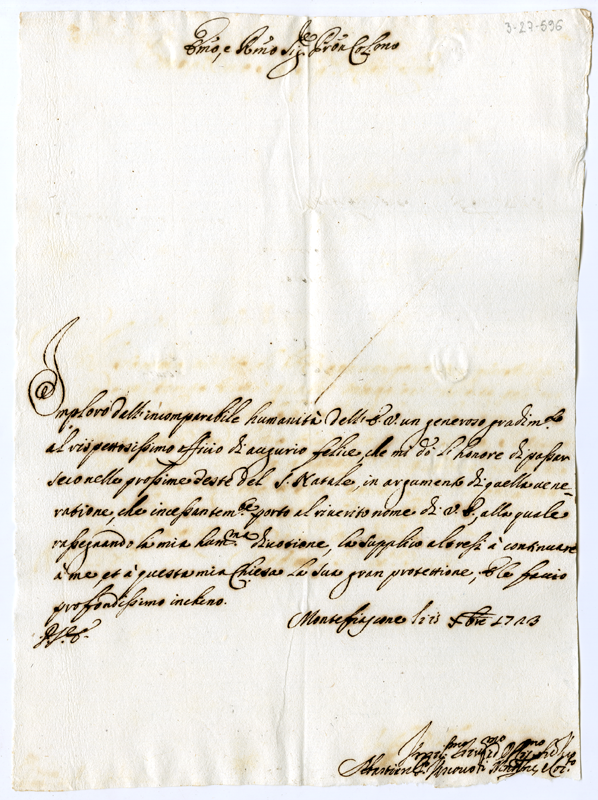 3-27-596
Em̃o, e Rm̃o Sig.re Pron Colmo
Imploro dall'incomparabile humanità dell'E. V. un generoso gradim.to
al rispettosissimo offitio di augurio felice, che mi dò l'honore di passar
seco nelle prossime feste del S. Natale, in argumento di quella vene=
ratione, che incessantem.te porto al riverito nome di V. E., alla quale
rassegnando la mia hum.ma divotione, la supplico altresì à continuare
à me et à questa mia Chiesa la sua gran protettione, e le faccio
profondissimo inchino.
Montefiascone li 15 Xbre 1723
D. V. E.